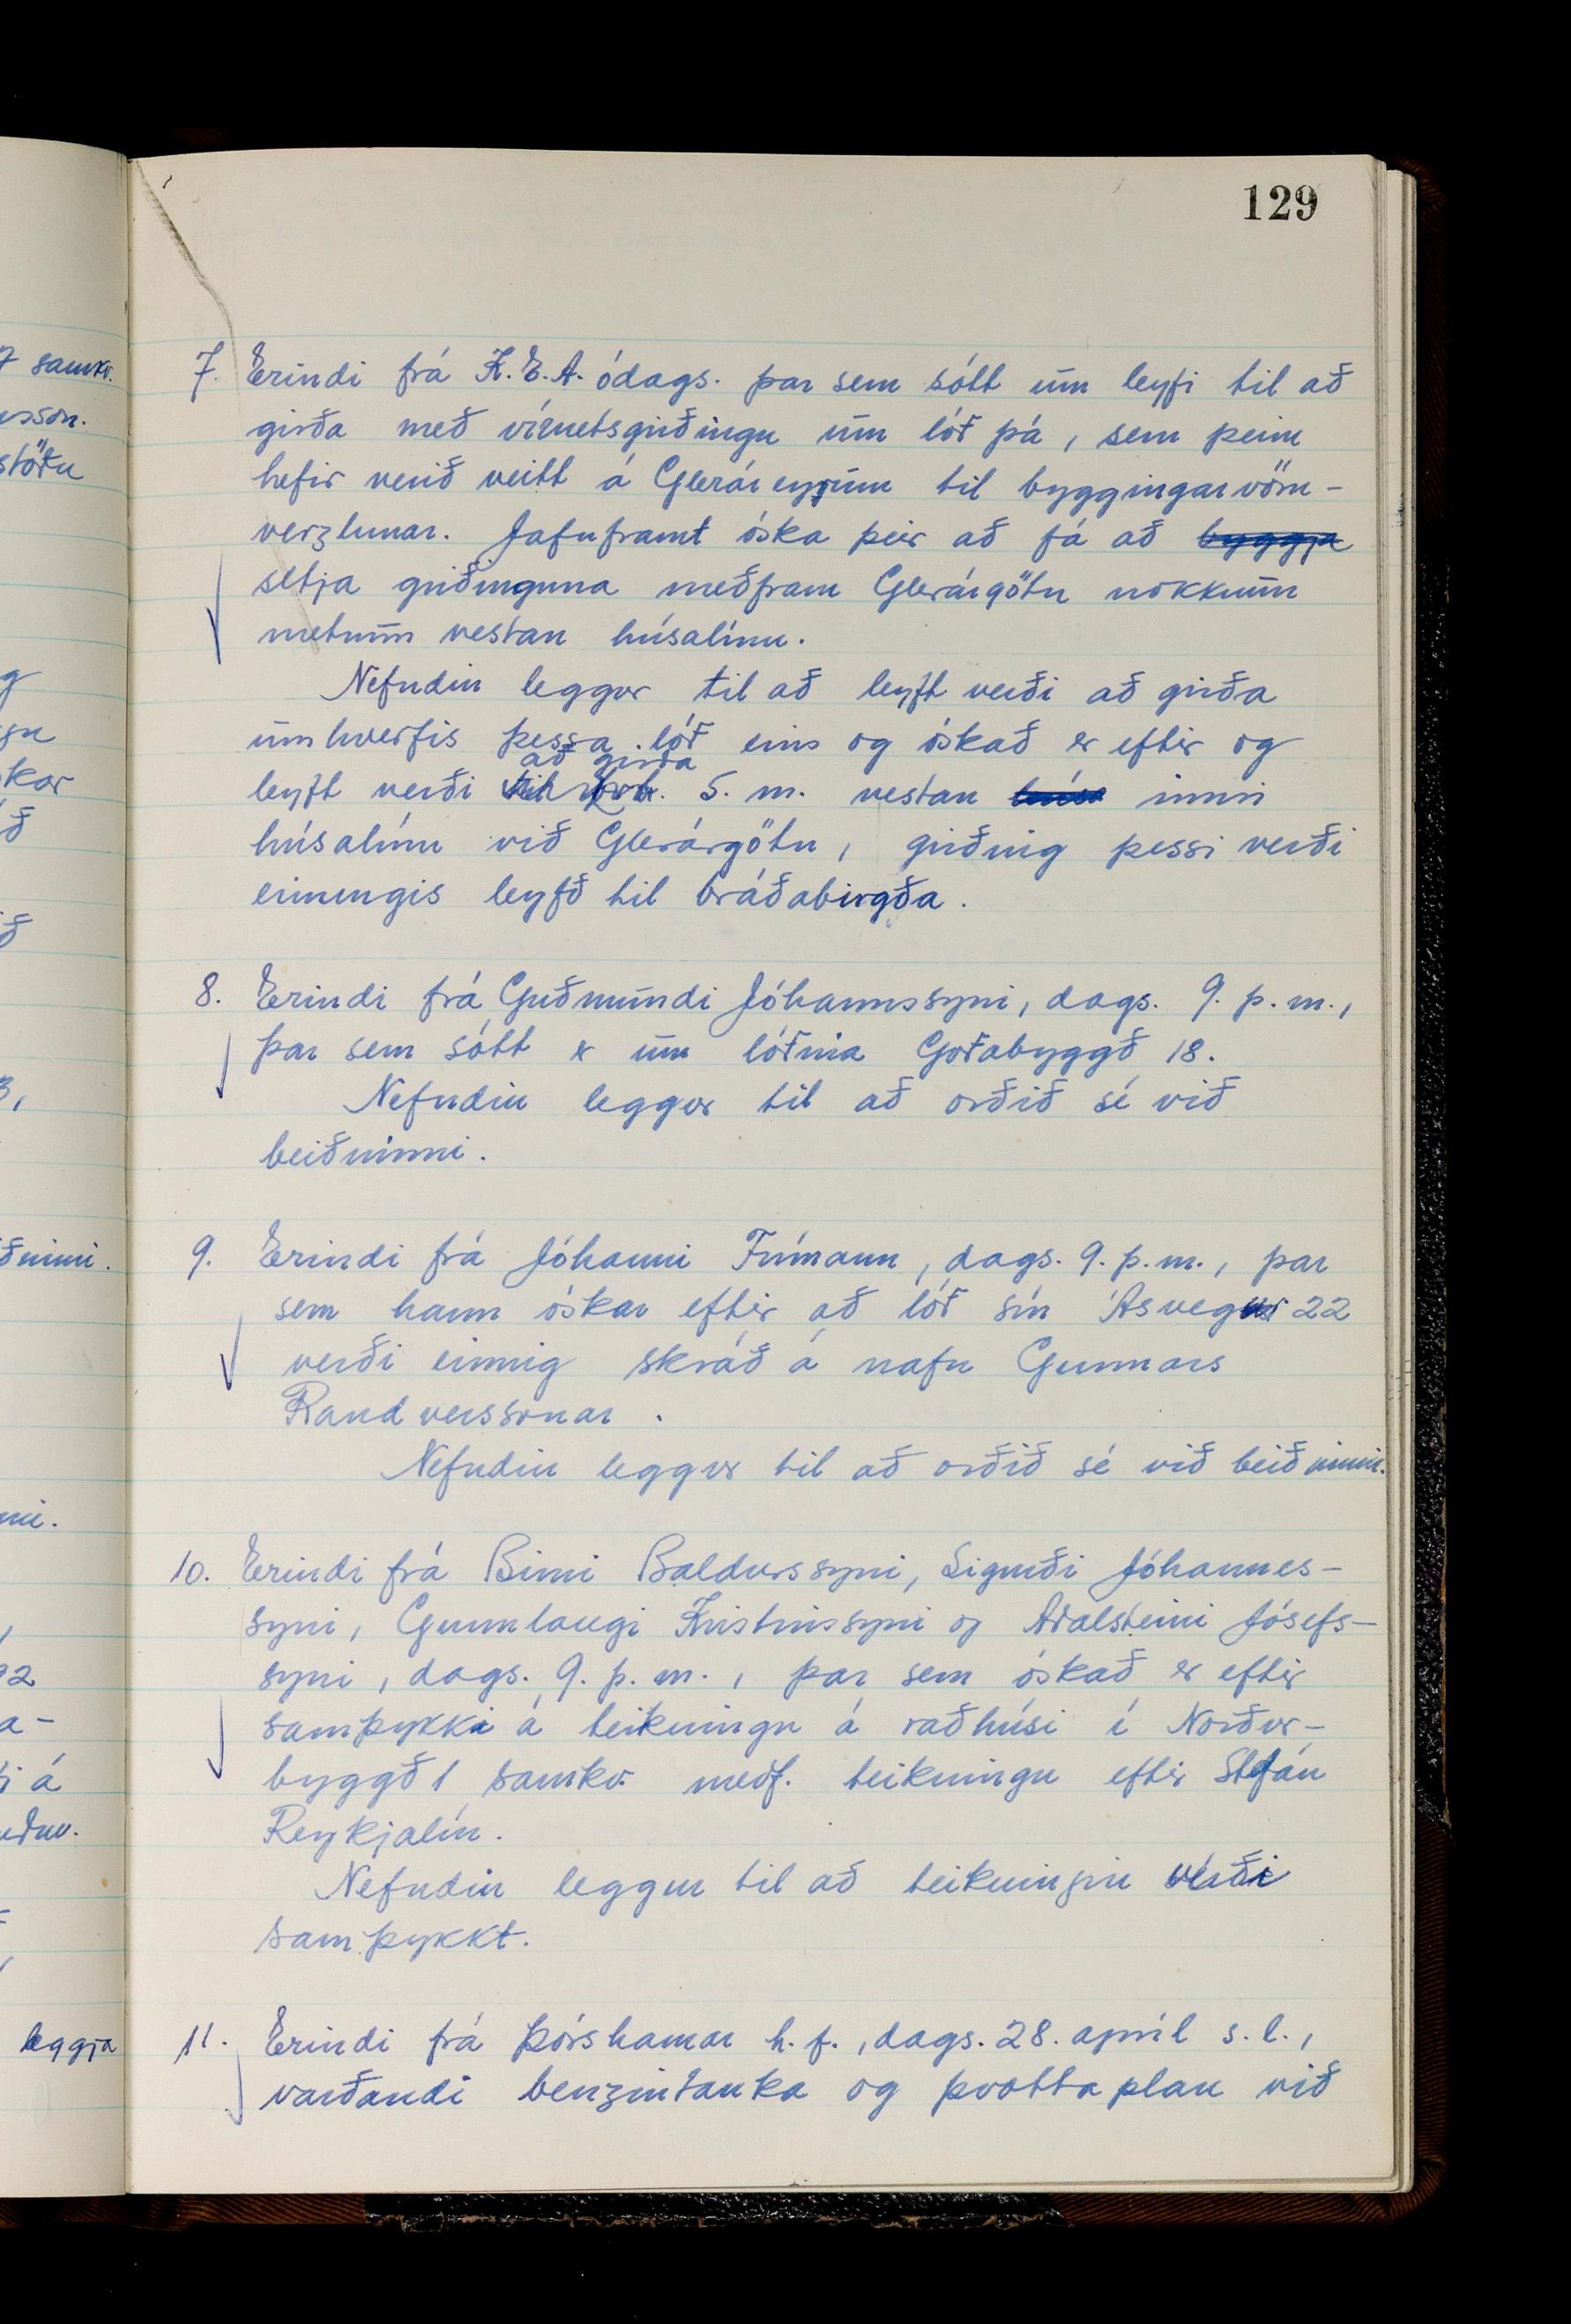 129
7. Erindi frá K.E.A. ódags. þar sem sótt um leyfi til að
girða með vírnetsgirðingu um lóð þá, sem þeim
hefir verið veitt á Gleráreyrum til byggingarvöru-
verzlunar. Jafnframt óska þeir að fá að byggja
setja girðinguna meðfram Glerárgötu nokkrum
metrum vestan húsalínu.
Nefndin leggur til að leyft verði að girða
umhverfis þessa lóð eins og óskað er eftir og
að girða
leyft verði 5. m. vestan húsa innri
húsalínu við Glerárgötu, girðing þessi verði
einungis leyfð til bráðabirgða.
8. Erindi frá Guðmundi Jóhannssyni, dags. 9. þ.m.,
þar sem sótt er um lóðina Goðabyggð 18.
Nefndin leggur til að orðið sé við
beiðninni.
9. Erindi frá Jóhanni Frímann, dags. 9. þ.m., þar
sem hann óskar eftir að lóð sín Ásvegur 22
verði einnig skráð á nafn Gunnars
Randverssonar.
Nefndin leggur til að orðið sé við beiðninni.
10. Erindi frá Birni Baldurssyni, Sigurði Jóhannes-
syni, Gunnlaugi Kristinssyni og Aðalsteini Jósefs-
syni, dags. 9. þ.m., þar sem óskað er eftir
samþykki á teikningu á raðhúsi í Norður-
byggð 1 samkv. meðf. teikningu eftir Stefán
Reykjalín.
Nefndin leggur til að teikningin verði
samþykkt.
11. Erindi frá Þórshamar h.f., dags. 28. apríl s.l.,
varðandi benzintanka og þvottaplan við